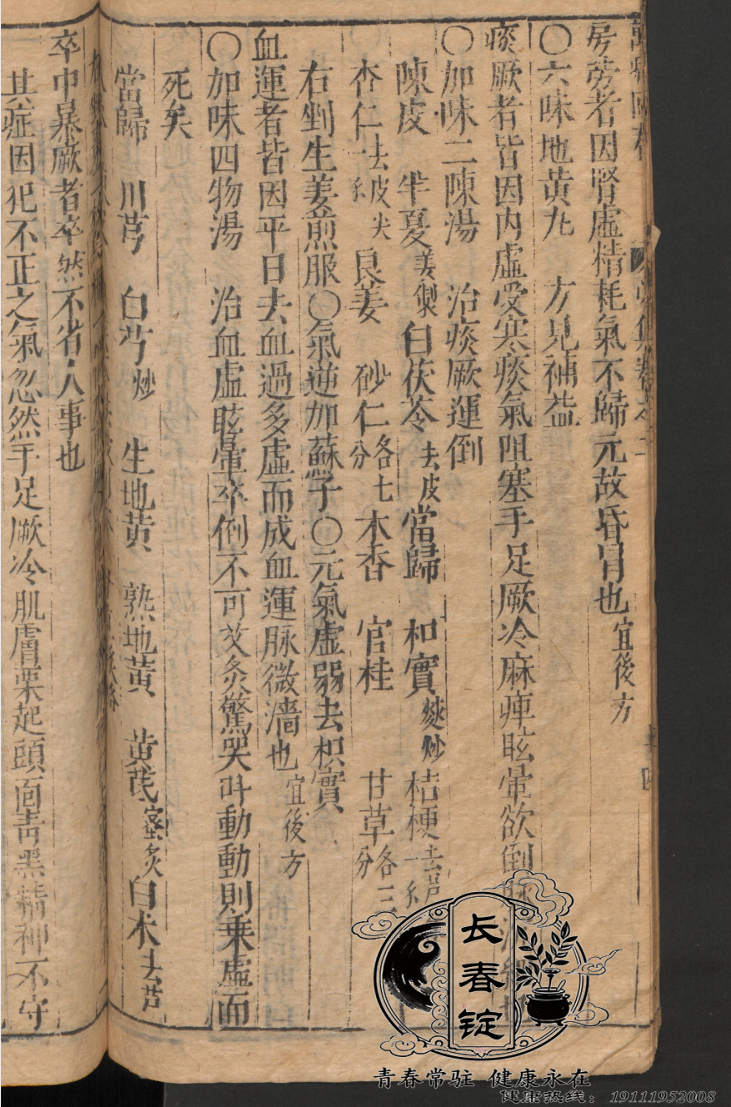 房勞者因腎虛精耗氣不歸元故昏冒也宜後方
〇六味地黃丸 方見補益
痰厥者皆因內虛受寒痰氣阻塞手足厥冷麻痺眩暈欲倒
〇加味二陳湯 治痰厥運倒
陳皮 半夏姜製 白茯苓去皮 當歸 枳實麩炒 桔梗去芦
杏仁去皮尖 良姜 砂仁各七分 木香 官桂 甘草各三分
右剉生姜煎服〇氣逆加蘇子〇元氣虛弱去枳實
血運者皆因平日去血過多虛而成血運脉微濇也宜後方
〇加味四物湯 治血虛眩暈卒倒不可艾灸驚哭叫動動則乗虛而
死矣
當歸 川芎 白芍炒 生地黃 熟地黃 黃芪蜜炙 白术去芦
卒中暴厥者卒然不省人事也
其症因犯不正之氣忽然手足厥冷肌膚粟起頭面青黑精神不守
长春锭
青春常驻 健康永在
健康热线：19111952008